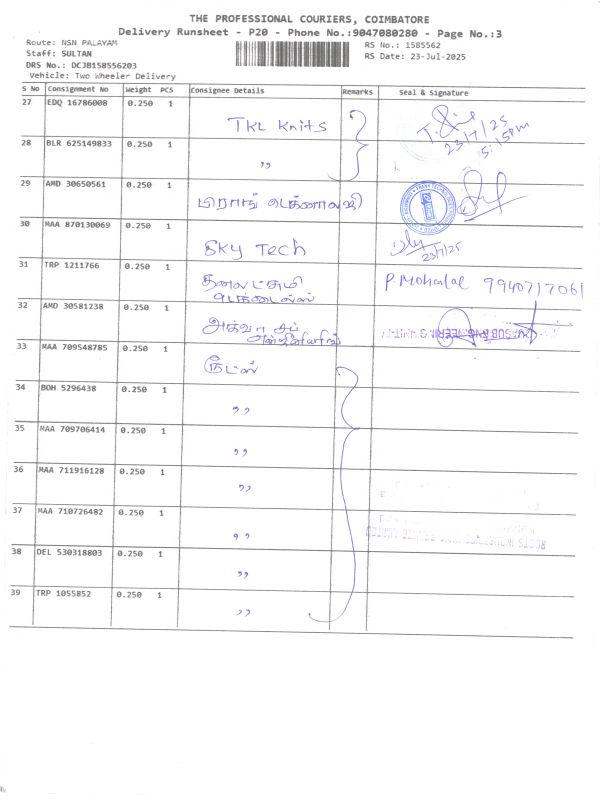 THE PROFESSIONAL COURIERS, COIMBATORE
Delivery Runsheet - P20 - Phone No.:9047080280 - Page No.:3
Route: NSN PALAYAM
RS No.: 1585562
Staff: SULTAN
RS Date: 23-Jul-2025
DRS No.: DCJB158556203
Vehicle: Two Wheeler Delivery
S No Consignment No Weight PCS Consignee Details Remarks Seal & Signature
27 EDQ 16786008 0.250 1 TKL Knits 23/7/25 5:15pm
28 BLR 625149833 0.250 1 ,,
29 AMD 30650561 0.250 1
30 MAA 870130069 0.250 1 SKY Tech 23/7/25
31 TRP 1211766 0.250 1 தனலட்சுமி டெக்டைல்ஸ் P. Mohanlal 9940717061
32 AMD 30581238 0.250 1 அக்வா சப் என்ஜினியரிங்
33 MAA 709548785 0.250 1 ரூட்ஸ்
34 BOH 5296438 0.250 1 ,,
35 MAA 709706414 0.250 1 ,,
36 MAA 711916128 0.250 1 ,,
37 MAA 710726482 0.250 1 ,,
38 DEL 530318803 0.250 1 ,,
39 TRP 1055852 0.250 1 ,,